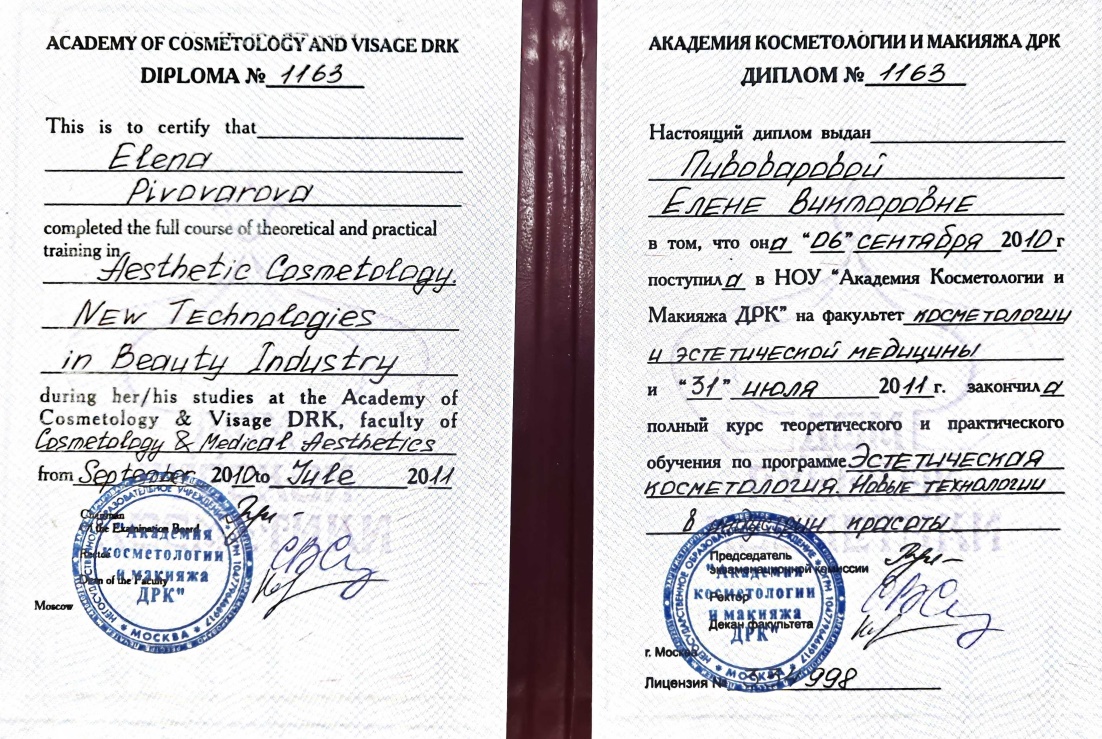 ACADEMY OF COSMETOLOGY AND VISAGE DRK
DIPLOMA № 1163
This is to certify that
Elena
Pivovarova
completed the full course of theoretical and practical
training in
Aesthetic Cosmetology.
New Technologies
in Beauty Industry
during her/his studies at the Academy of
Cosmetology & Visage DRK, faculty of
Cosmetology & Medical Aesthetics
from September 2010 to Jule 2011
Chairman
of the Examination Board
Rector
Dean of the Faculty
Moscow
НЕГОСУДАРСТВЕННОЕ ОБРАЗОВАТЕЛЬНОЕ УЧРЕЖДЕНИЕ
"Академия
косметологии
и макияжа
ДРК"
* МОСКВА *
АКАДЕМИЯ КОСМЕТОЛОГИИ И МАКИЯЖА ДРК
ДИПЛОМ № 1163
Настоящий диплом выдан
Пивоваровой
Елене Викторовне
в том, что она "06" сентября 2010 г
поступила в НОУ "Академия Косметологии и
Макияжа ДРК" на факультет косметологии
и эстетической медицины
и "31" июля 2011 г. закончила
полный курс теоретического и практического
обучения по программе Эстетическая
косметология. Новые технологии
в индустрии красоты
Председатель
экзаменационной комиссии
Ректор
Декан факультета
г. Москва
Лицензия №
998
НЕГОСУДАРСТВЕННОЕ ОБРАЗОВАТЕЛЬНОЕ УЧРЕЖДЕНИЕ
"Академия
косметологии
и макияжа
ДРК"
* МОСКВА *